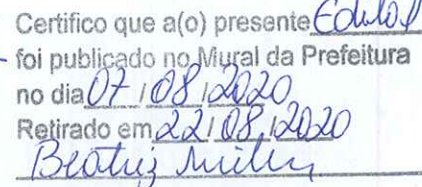 Certifico que a(o) presente Edital
foi publicado no Mural da Prefeitura
no dia 07 / 08 / 2020
Retirado em 22 / 08 / 2020
Beatriz